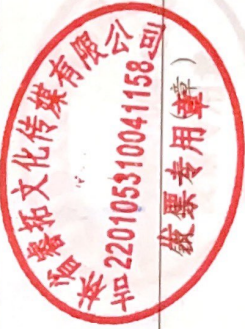 吉林省馨拓文化传媒有限公司
220105310041158
发票专用章
章）